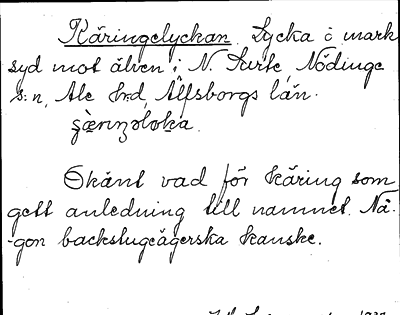 Käringelyckan. Lycka i mark
syd mot älven i N. Surte, Nödinge
s:n, Ale hrd, Älfsborgs län.
Okänt vad för käring som
gett anledning till namnet. Nå-
-gon backstugeägerska kanske.